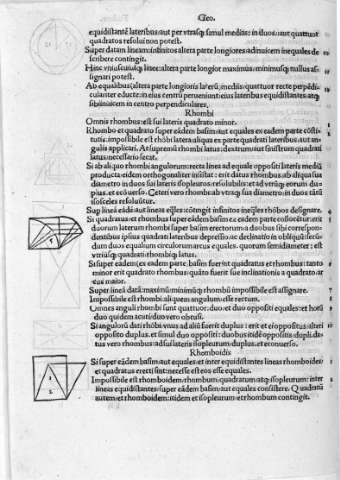 Geo.
equidistãte lateribus: aut per vtrasq; simul medite: in duos: aut quattuor
quadratos resolui non potest.
Super datam lineam infinitos altera parte longiores adinuicem inequales de
scribere contingit.
Hinc vniuscuiusq; linee: altera parte longior maximus: minimusq; nullus as-
signari potest.
Ab equalibus: altera parte longioris laterū: medijs: quattuor recte perpēdi-
culariter educte: in eius centrū peruenient: eius lateribus equidistantes: atq;
sibiinuicem in centro perpendiculares.
Rhombi
Omnis rhombus: est sui lateris quadrato minor.
Rhombo et quadrato super eādem basim: aut equales ex eadem parte cōsti-
tutis: impossibile est rhōbi latera aliqua ex parte quadrati lateribus: aut an-
gulis applicari. At supremū rhombi latus: dextrum aut sinistrum quadrati
latus: necessario secat.
Si ab aliquo rhombi angulorum: recta linea ad equale oppositi lateris mediū
producta: eidem orthogonaliter insistat: erit datus rhombus: ab aliqua sua
diametro in duos sui lateris isopleuros resolubilis: et ad vtrūq; eorum du-
plus. et ecōuerso. Ceteri vero rhombi: ab vtraq; sua diametro: in duos tātū
isosceles resoluūtur.
Sup linea eadē: aut lineas eqles: cōtingit infinitos ineqles rhōbos designare.
Si quadratus: et rhombus super eādem basim: ex eadem parte consorgētur: erit
duorum laterum rhombi super basim erectorum a duobus sibi correspon-
dentibus ipsius quadrati lateribus depressio: ac declinatio in obliquū: secun-
dum duos equalium circulorum arcus equales. quorum semidiameter: est
vtriusq; quadrati rhombiq; latus.
Si super eadem: ex eadem parte, basim fuerint quadratus et rhombus: tanto
minor erit quadrato rhombus: quāto fuerit sue inclinationis a quadrato ar
cus maior.
Super linea data: maximū minimūq; rhombū impossibile est assignare.
Impossibile est rhombi: aliquem angulum: esse rectum.
Omnes anguli rhombi sunt quattuor: duo et duo oppositi equales: et horū
duo quidem acuti: duo vero obtusi.
Si angulorū dati rhōbi vnus ad aliū fuerit duplus: erit et eioppositus: alteri
opposito duplus. et simul duo oppositi: duobus inde oppositis dupli. da-
tus vero rhombus: ad sui lateris isopleurum: duplus: et econuerso.
Rhomboidis
Si super eādem basim: aut equales: et inter equidistantes lineas rhomboides
et quadratus erecti sint: necesse est eos esse equales.
Impossibile est rhomboidem: rhombum: quadratum: atq; isopleurum: inter
lineas equidistantes: super eādem basim: aut equales consistere. Quadratū
autem: et rhomboidem: itidem et isopleurum et rhombum contingit.